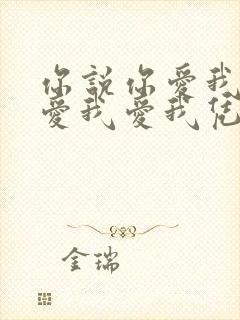 你說你愛我
愛我愛我凭
金瑞